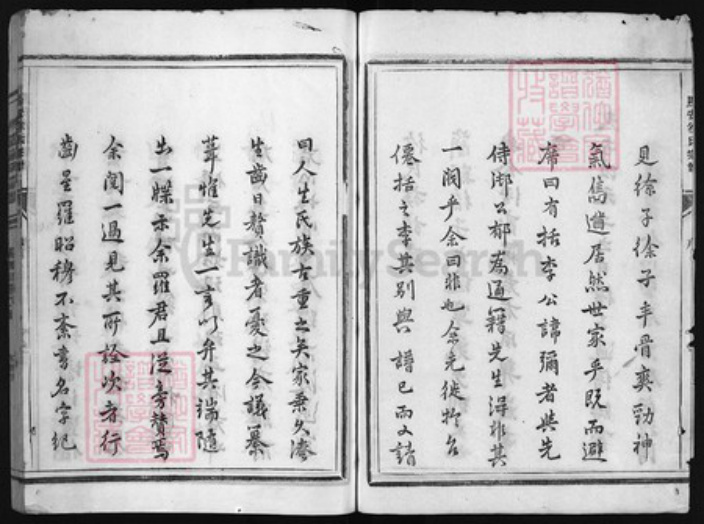 見徐子徐子丰骨爽勁神
氣雋遒居然世家乎既而避
席曰有括李公諱彌者與先
侍御公都為通籍先生得非其
一閥乎余曰非也余先徙於台
僊括之李其別與譜已而又請
曰人生氏族古重之矣家乘久湮
生齒日贅識者憂之今議纂
葺惟先生一言以弁其端隨
出一牒示余羅君且從旁贊焉
余閱一過見其所詮次者行
齒星羅昭穆不紊書名字紀
FamilySearch